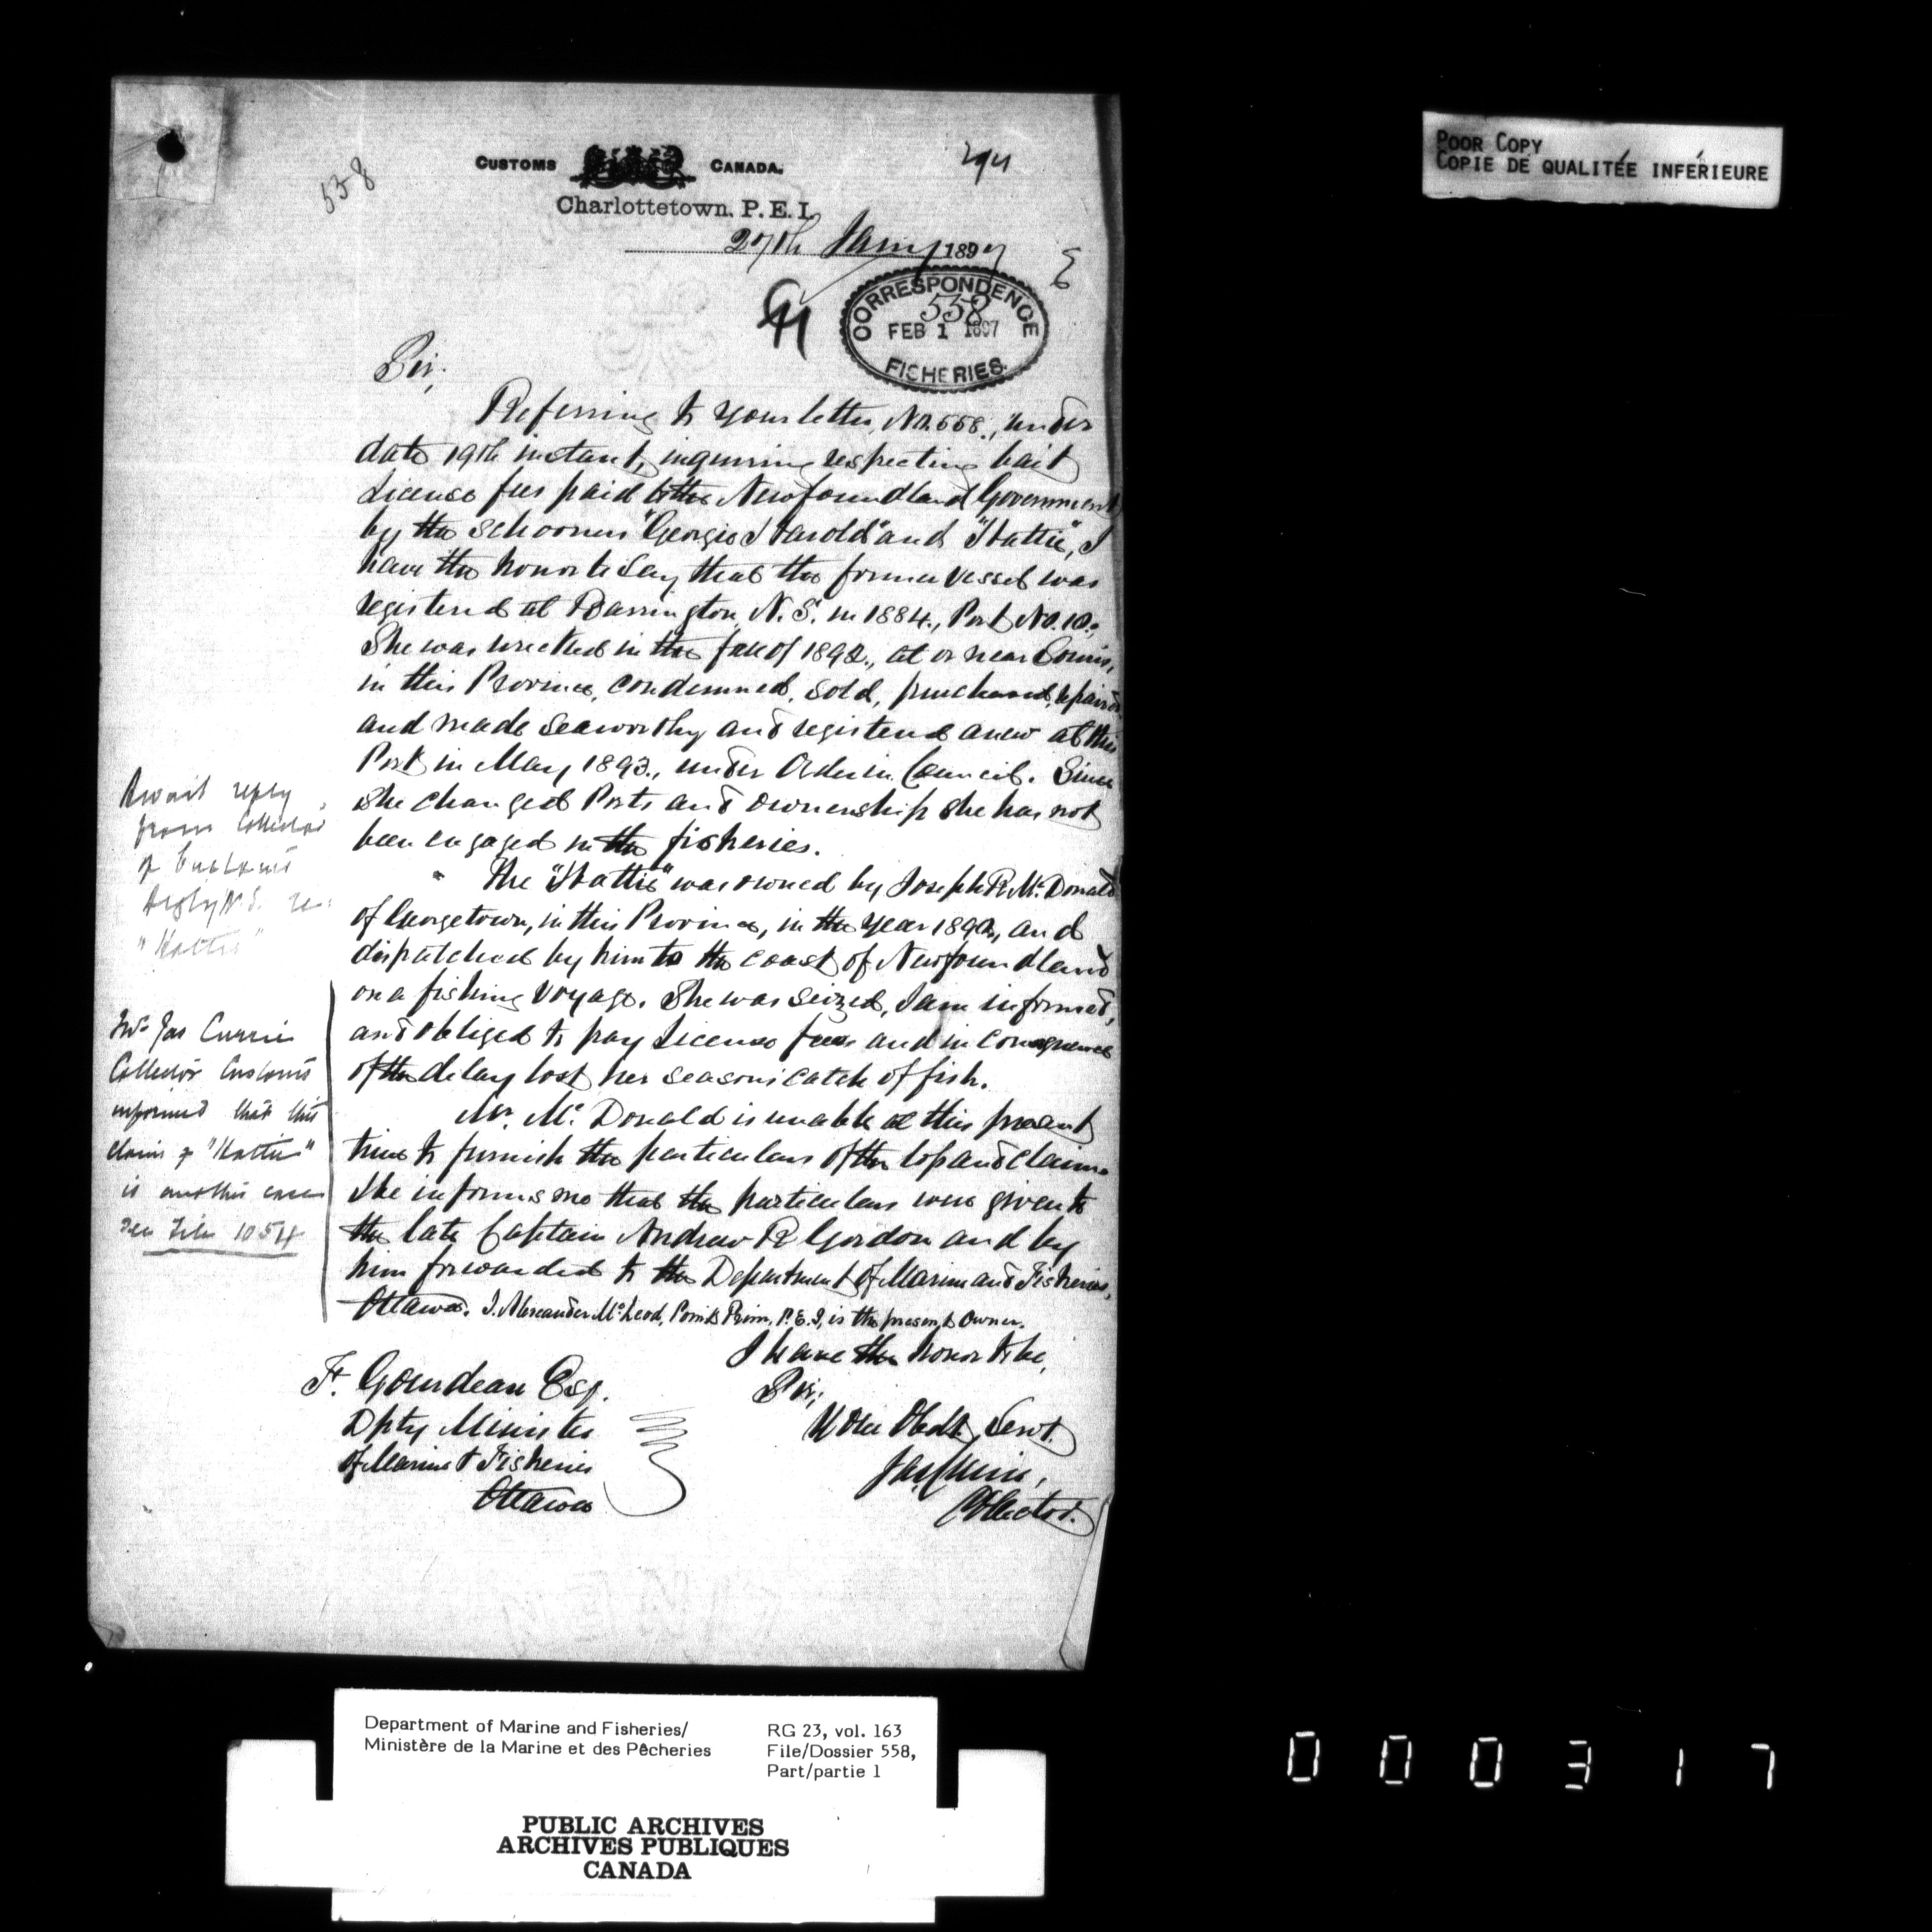 POOR COPY
COPIE DE QUALITÉE INFÉRIEURE
558
CUSTOMS CANADA.
Charlottetown, P.E.I.
27th Jany 1897
CORRESPONDENCE
558
FEB 1 1897
FISHERIES.
Sir,
Referring to your letter, No. 558., under
date 19th instant, inquiring respecting bait
License fees paid to the Newfoundland Government
by the schooners "Georgie Harold" and "Hattie", I
have the honor to say that the former vessel was
registered at Barrington, N.S. in 1884., Port No. 10.,
She was wrecked in the fall of 1892., at or near Souris,
in this Province, condemned, sold, purchased, repaired
and made seaworthy and registered anew at this
Port in May 1893., under Order in Council. Since
she changed Ports and ownership she has not
been engaged in the fisheries.
The "Hattie" was owned by Joseph R. McDonald
of Georgetown, in this Province, in the year 1892, and
dispatched by him to the coast of Newfoundland
on a fishing voyage. She was seized, I am informed,
and obliged to pay License fees and in consequence
of the delay lost her seasons catch of fish.
Mr. McDonald is unable at this present
time to furnish the particulars of the loss and claim.
He informs me that the particulars were given to
the late Captain Andrew R Gordon and by
him forwarded to the Department of Marine and Fisheries,
Ottawa. J. Alexander McLeod, Point Prim, P.E.I, is the present owner.
I have the honor to be,
Sir,
Your Obdt. Servt.
Jas Currie,
Collector.
F. Gourdeau Esq.
Dpty Minister
of Marine & Fisheries
Ottawa
Await reply
from Collector
of Customs
Digby N.S. re:
"Hattie"
Mr. Jas Currie
Collector Customs
informed that this
claim of "Hattie"
is another case
see File 1054
Department of Marine and Fisheries/
Ministère de la Marine et des Pêcheries
RG 23, vol. 163
File/Dossier 558,
Part/partie 1
PUBLIC ARCHIVES
ARCHIVES PUBLIQUES
CANADA
000317